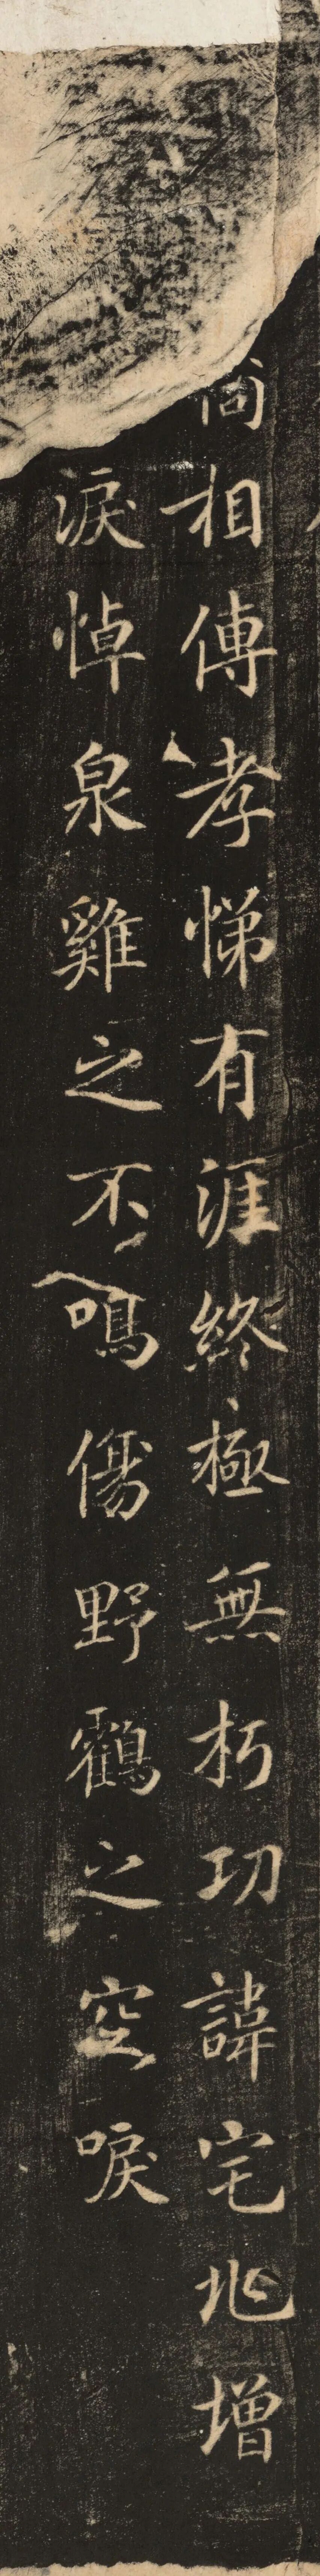 尙相傳孝悌有涯終極無朽功諱宅兆增
淚悼泉雞之不鳴傷野鶴之空唳